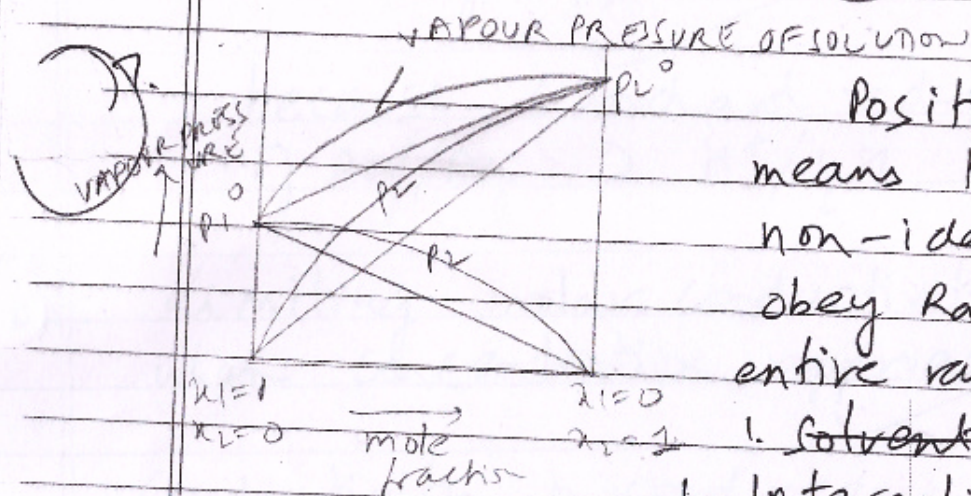 VAPOUR PRESSURE OF SOLUTION
VAPOUR PRESS
URE
p1°
p2°
p2
p2
x1=1
x2=0
mole
fraction
x1=0
x2=1
Posit
means
non-id
obey Ra
entire ra
1. Solvent
1. Inte